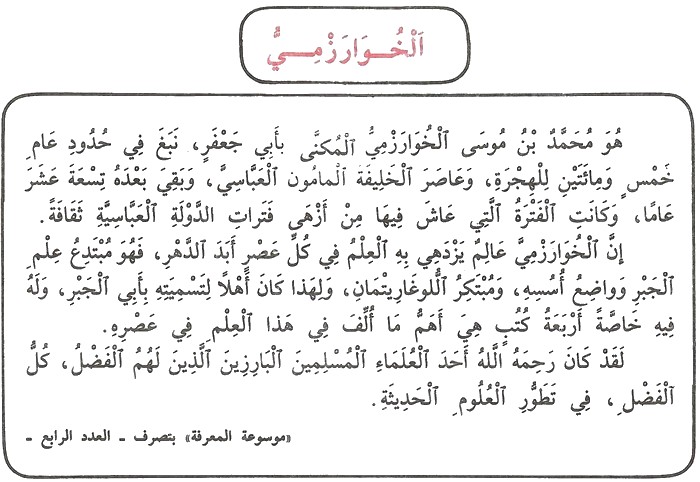 اَلْخُــوَارَزْمِــيُّ
هُوَ مُحَمَّدٌ بْنُ مُوسَى ٱلْخُوَارَزْمِيُّ ٱلْمُكَنَّى بأَبِي جَعْفَرٍ، نَبَغَ فِي حُدُودِ عَامِ
خَمْسٍ وَمِائَتَيْنِ لِلْهِجْرَةِ، وَعَاصَرَ ٱلْخَلِيفَةَ ٱلْمَامُون ٱلْعَبَّاسِيَّ، وَبَقِيَ بَعْدَهُ تِسْعَةَ عَشَرَ
عَامًا، وَكَانَتِ ٱلْفَتْرَةُ ٱلَّتِي عَاشَ فِيهَا مِنْ أَزْهَى فَتَراتِ الدَّوْلَةِ ٱلْعَبَّاسِيَّةِ ثَقَافَةً.
إِنَّ ٱلْخُوَارَزْمِيَّ عَالِمٌ يَزْدَهِي بِهِ ٱلْعِلْمُ فِي كُلِّ عَصْرٍ أَبَدَ ٱلدَّهْرِ، فَهُوَ مُبْتَدِعُ عِلْمِ
ٱلْجَبْرِ وَوَاضِعُ أُسُسِهِ، وَمُبْتَكِرُ ٱللُّوغَارِيتْمَانِ، وَلِهٰذَا كَانَ أَهْلًا لِتَسْمِيَتِهِ بِأَبِي ٱلْجَبْرِ، وَلَهُ
فِيهِ خَاصَّةً أَرْبَعَةُ كُتُبٍ هِيَ أَهَمُّ مَا أُلِّفَ فِي هَذَا ٱلْعِلْمِ فِي عَصْرِهِ.
لَقَدْ كَانَ رَحِمَهُ ٱللَّهُ أَحَدَ ٱلْعُلَمَاءِ ٱلْمُسْلِمِينَ ٱلْبَارِزِينَ ٱلَّذِينَ لَهُمُ ٱلْفَضْلُ، كُلُّ
ٱلْفَضْلِ، فِي تَطَوُّرِ ٱلْعُلُومِ ٱلْحَدِيثَةِ.
«موسوعة المعرفة» بتصرف ـ العدد الرابع ـ